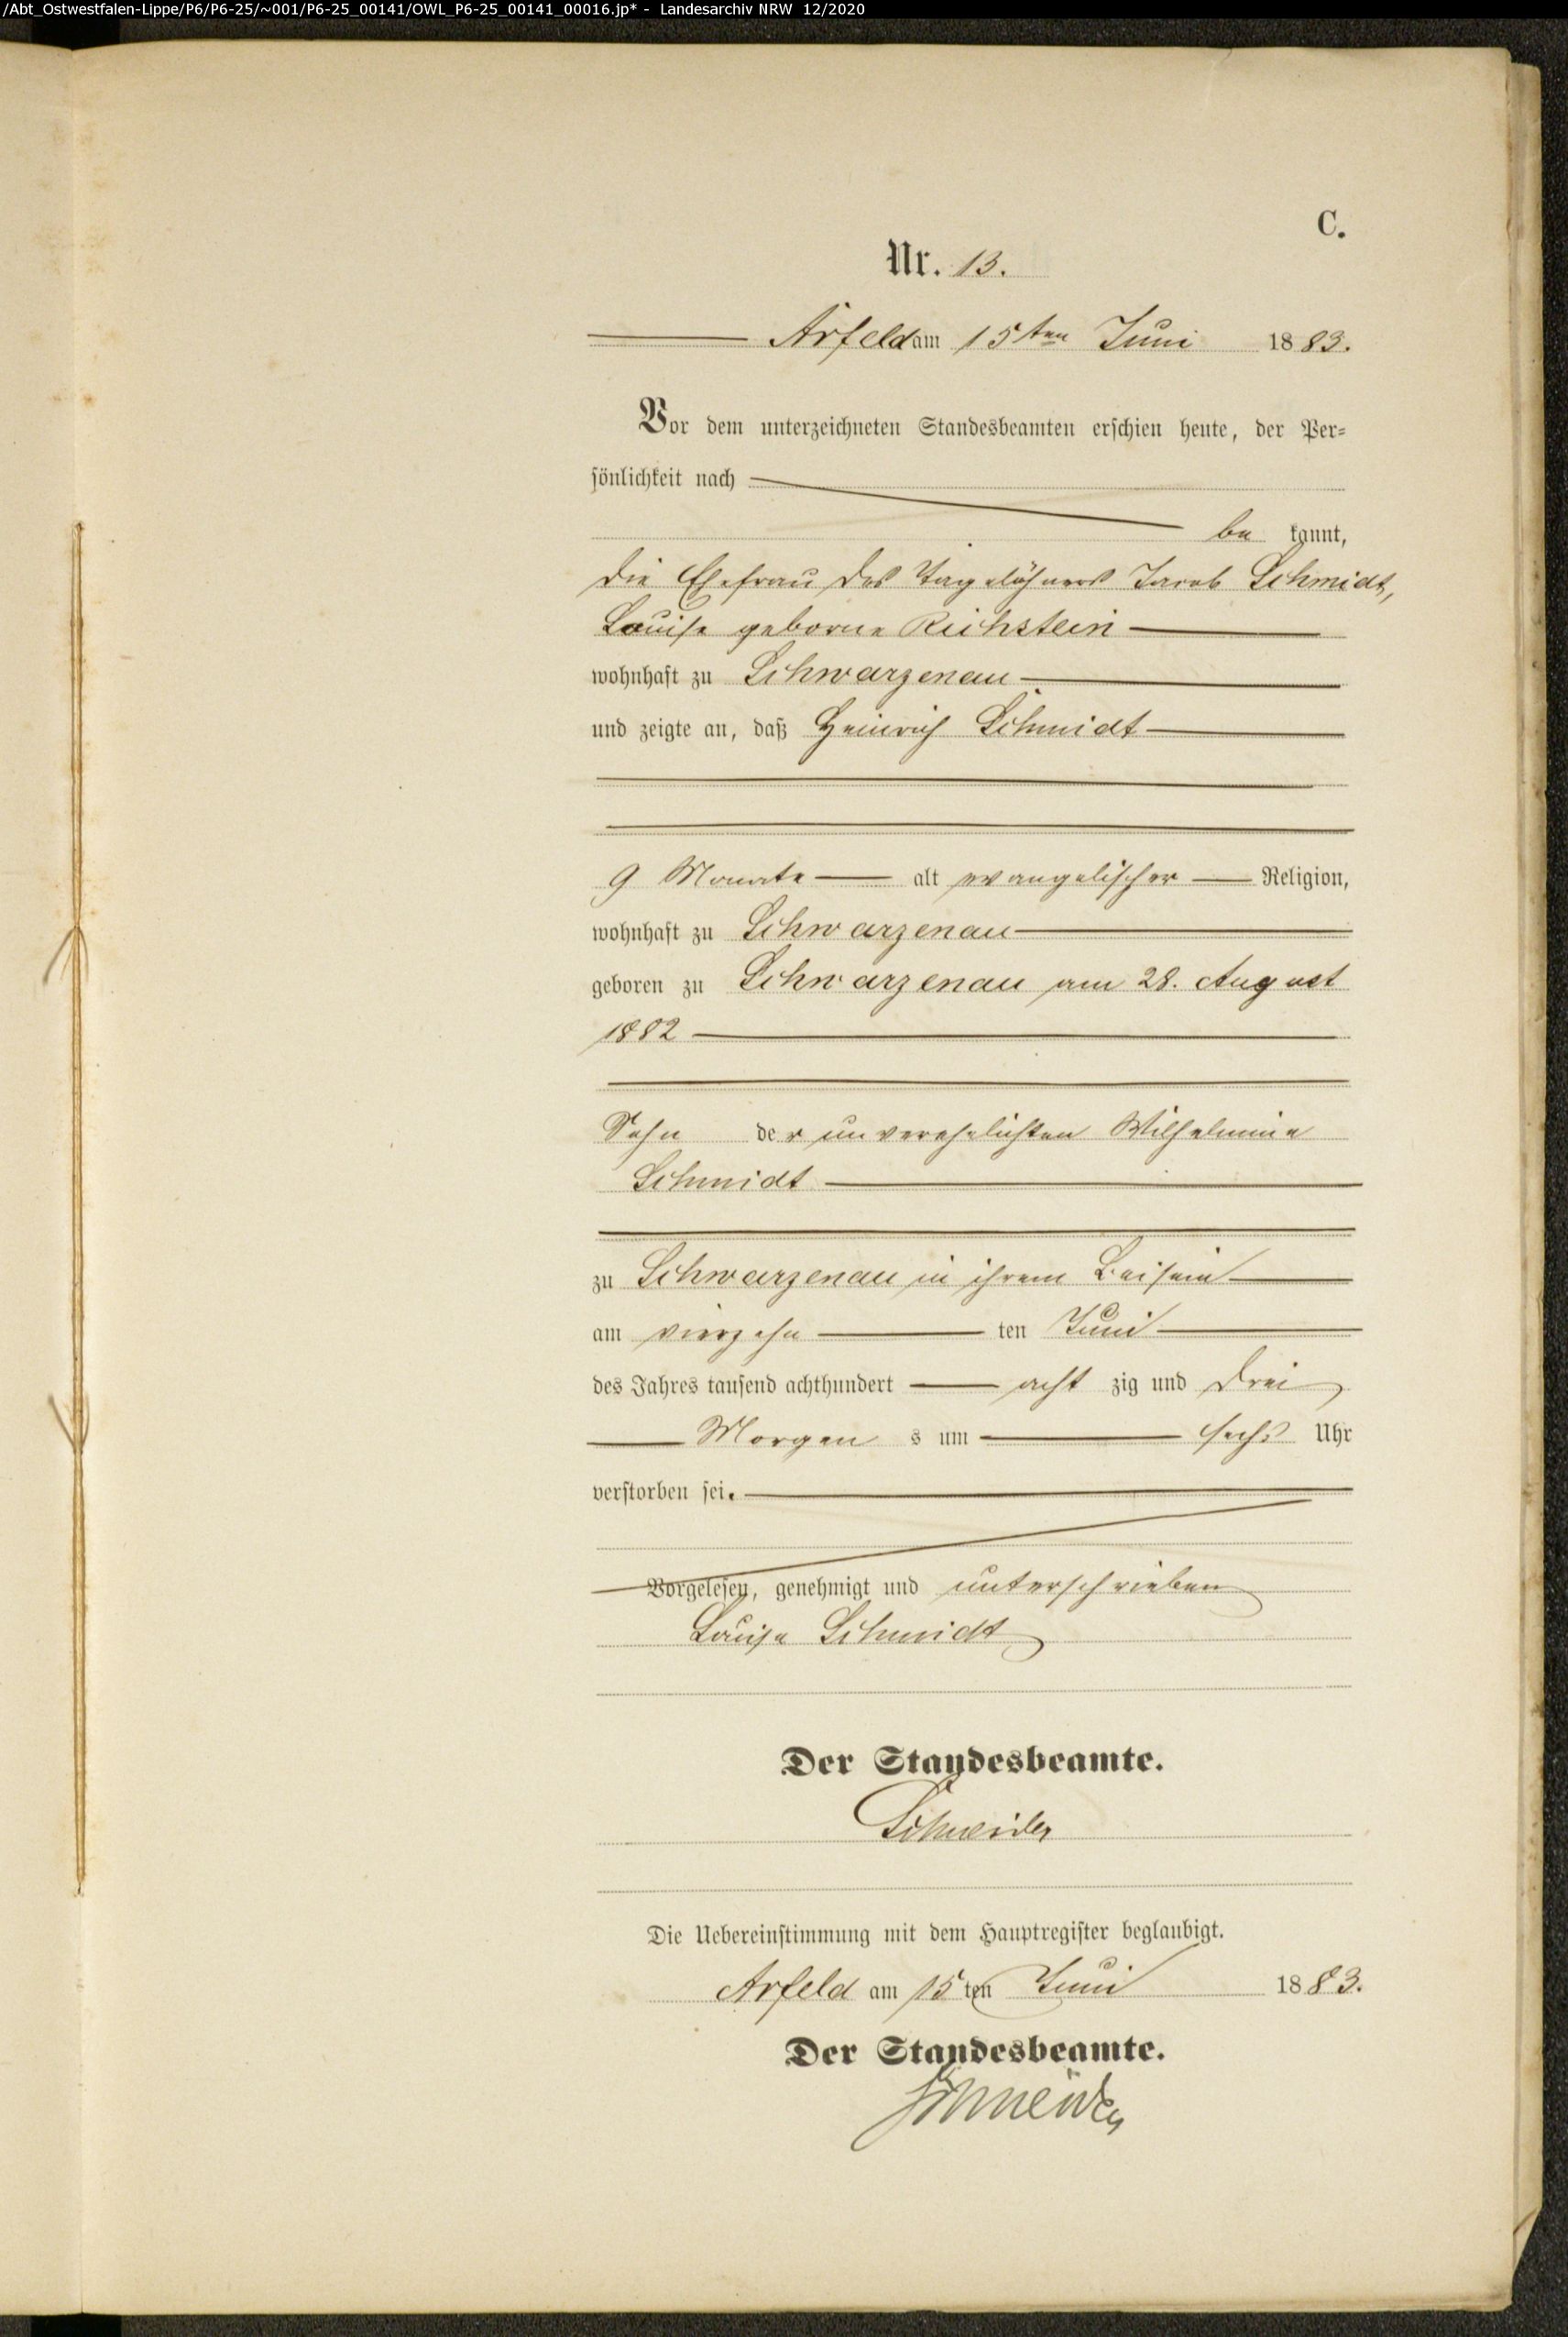 /Abt_Ostwestfalen-Lippe/P6/P6-25/~001/P6-25_00141/OWL_P6-25_00141_00016.jp* - Landesarchiv NRW 12/2020
C.
Nr. 13.
Arfeld am 15ten Juni 1883.
Vor dem unterzeichneten Standesbeamten erschien heute, der Per-
sönlichkeit nach
be kannt,
die Ehefrau des Tagelöhners Jacob Schmidt,
Louise geborne Richstein
wohnhaft zu Schwarzenau
und zeigte an, daß Heinrich Schmidt
9 Monate alt evangelischer Religion,
wohnhaft zu Schwarzenau
geboren zu Schwarzenau am 28. August
1882
Sohn der unverehelichten Wilhelmine
Schmidt
zu Schwarzenau in ihrem Beisein
am vierzehn ten Juni
des Jahres tausend achthundert acht zig und drei
Morgen s um sechs Uhr
verstorben sei.
Vorgelesen, genehmigt und unterschrieben
Louise Schmidt
Der Standesbeamte.
Schneider
Die Uebereinstimmung mit dem Hauptregister beglaubigt.
Arfeld am 15ten Juni 1883.
Der Standesbeamte.
Schneider